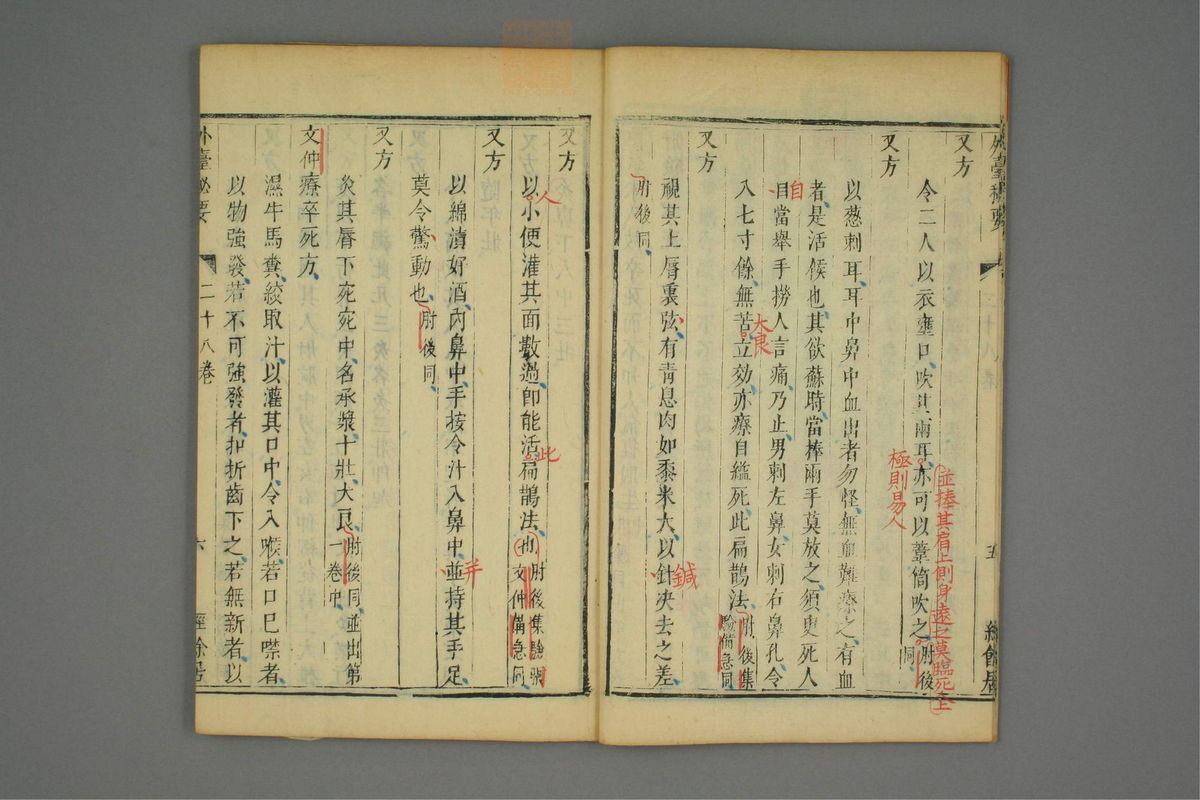 又方
令二人以衣壅口吹其兩耳亦可以葦筒吹之肘後同
並捧其肩上側身遠之莫臨死上
極則易人
又方
以葱刺耳耳中鼻中血出者勿怪無血難療之有血
者是活候也其欲蘇時當捧兩手莫放之須臾死人
自
目當舉手撈人言痛乃止男刺左鼻女刺右鼻孔令
入七寸餘無苦立効亦療自縊死此扁鵲法肘後集驗備急同
大良
又方
視其上唇裏弦有青息肉如黍米大以針决去之差
鍼
肘後同
五
經餘居
又方
以小便灌其面數過即能活扁鵲法也肘後集驗張文仲備急同
人
此
又方
以綿漬好酒內鼻中手按令汁入鼻中並持其手足
并
莫令驚動也肘後同
又方
灸其唇下宛宛中名承漿十壯大良肘後同並出第一卷中
文仲療卒死方
濕牛馬糞絞取汁以灌其口中令入喉若口已噤者
以物強發若不可強發者扣折齒下之若無新者以
外臺秘要
二十八卷
六
經餘居